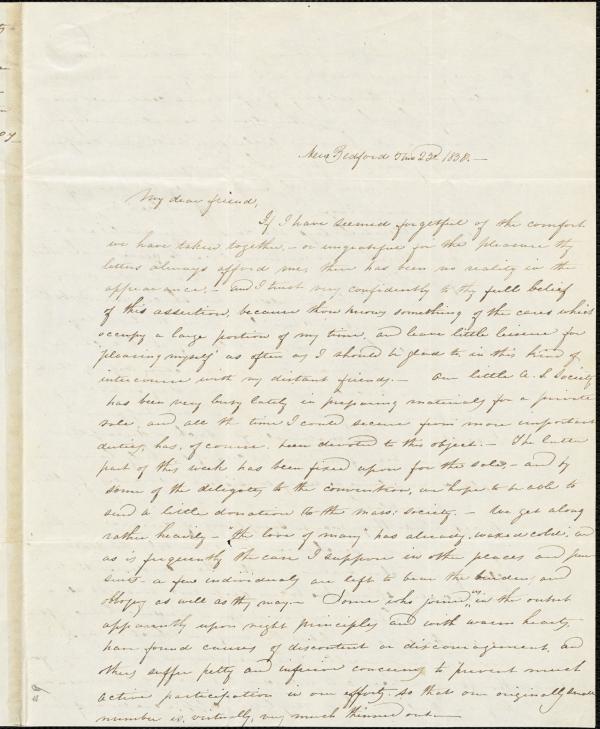 New Bedford 5 mo 23d 1838.—
My dear friend,
If I have seemed forgetful of the comfort
we have taken together,— or ungrateful for the pleasure thy
letters always afford me, there has been no reality in the
appearance,— and I trust very confidently to thy full belief
of this assertion, because thou knows something of the cares which
occupy a large portion of my time, and leave little leisure for
"pleasing myself" as often as I should be glad to in this kind of
intercourse with my distant friends.— Our little A. S. Society
has been very busy lately in preparing materials for a private
sale, and all the time I could secure from more important
duties, has, of course, been devoted to this object.— The latter
part of this week has been fixed upon for the sale,— and by
some of the delegates to the convention, we hope to be able to
send a little donation to the mass: society.— We get along
rather heavily— "the love of many" has already "waxed cold", and
as is frequently the case I suppose in other places and
a few individuals are left to bear the burden, and
as well as they may.— Some who joined us in the outset
apparently upon right principles and with warm hearts,
have found causes of discontent or discouragement, and
others suffer petty and inferior concerns to prevent much
active participation in our efforts so that our originally small
number is, virtually, very much thinned out.—